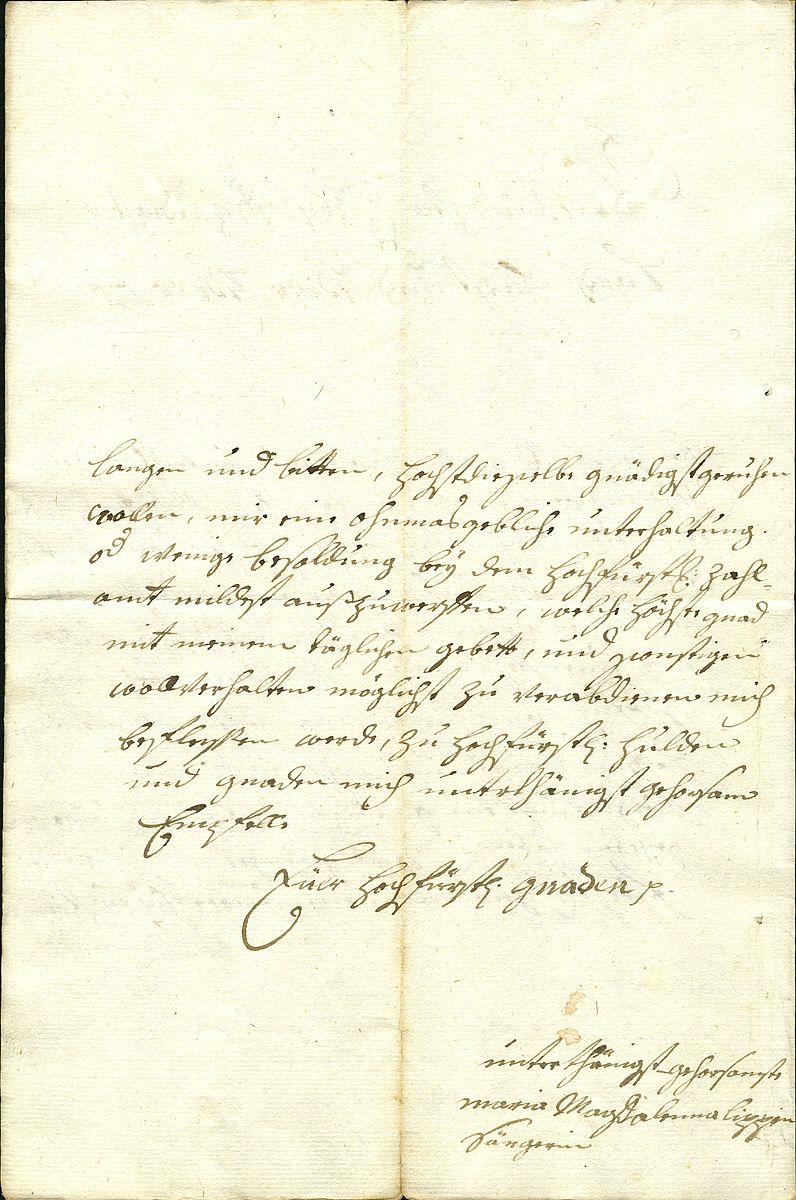 langen und bitten, Hochstdieselbe gnädigst geruhen
wollen, mir eine ohnmasgebliche unterhaltung
od wenige besoldung bey dem Hochfürstl: Zahl-
amt mildest außzuwerffen, welche höchste gnad
mit meinem täglichen gebett, und sonstigen
wollverhalten möglichst zu verabdienen mich
befleyssen werde, zu Hochfürstl: Hulden
und gnaden mich unterthänigst gehorsam
Empfelle
Euer Hochfürstl: gnaden p.
unterthänigst-gehorsamste
maria Magdalenna Lippin
Sängerin